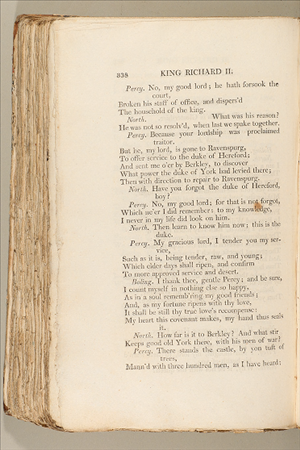 338 KING RICHARD II.
Percy. No, my good lord; he hath forsook the
court,
Broken his staff of office, and dispers'd
The household of the king.
North. What was his reason?
He was not so resolv'd, when last we spake together.
Percy. Because your lordship was proclaimed
traitor.
But he, my lord, is gone to Ravenspurg,
To offer service to the duke of Hereford;
And sent me o'er by Berkley, to discover
What power the duke of York had levied there;
Then with direction to repair to Ravenspurg.
North. Have you forgot the duke of Hereford,
boy?
Percy. No, my good lord; for that is not forgot,
Which ne'er I did remember: to my knowledge,
I never in my life did look on him.
North. Then learn to know him now; this is the
duke.
Percy. My gracious lord, I tender you my ser-
vice,
Such as it is, being tender, raw, and young;
Which elder days shall ripen, and confirm
To more approved service and desert.
Boling. I thank thee, gentle Percy; and be sure,
I count myself in nothing else so happy,
As in a soul rememb'ring my good friends;
And, as my fortune ripens with thy love,
It shall be still thy true love's recompense:
My heart this covenant makes, my hand thus seals
it.
North. How far is it to Berkley? And what stir
Keeps good old York there, with his men of war?
Percy. There stands the castle, by yon tuft of
trees,
Mann'd with three hundred men, as I have heard: